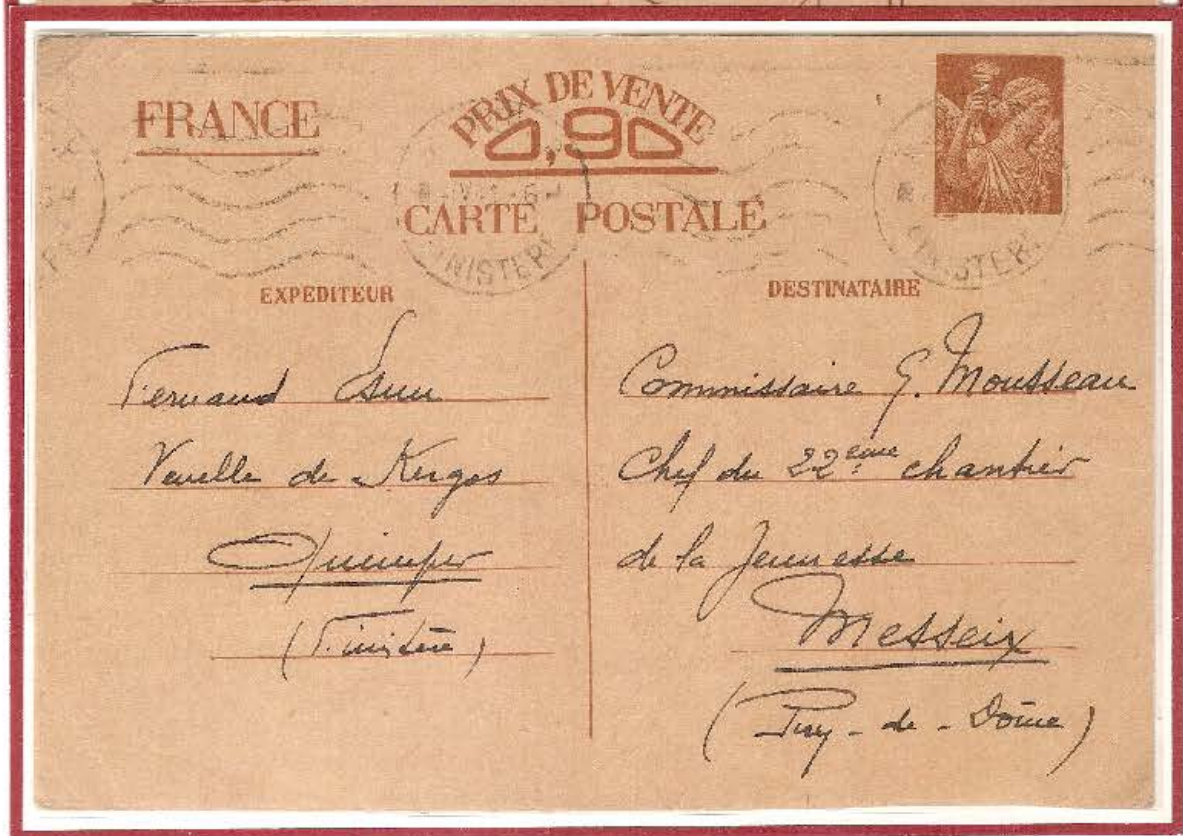 FRANCE
PRIX DE VENTE
0,90
CARTE POSTALE
FINISTERE
FINISTERE
EXPÉDITEUR
Fernand
Venelle de Kergos
Quimper
(Finistère)
DESTINATAIRE
Commissaire G. Mousseau
Chef du 22ème chantier
de la Jeunesse
Messeix
(Puy-de-Dôme)